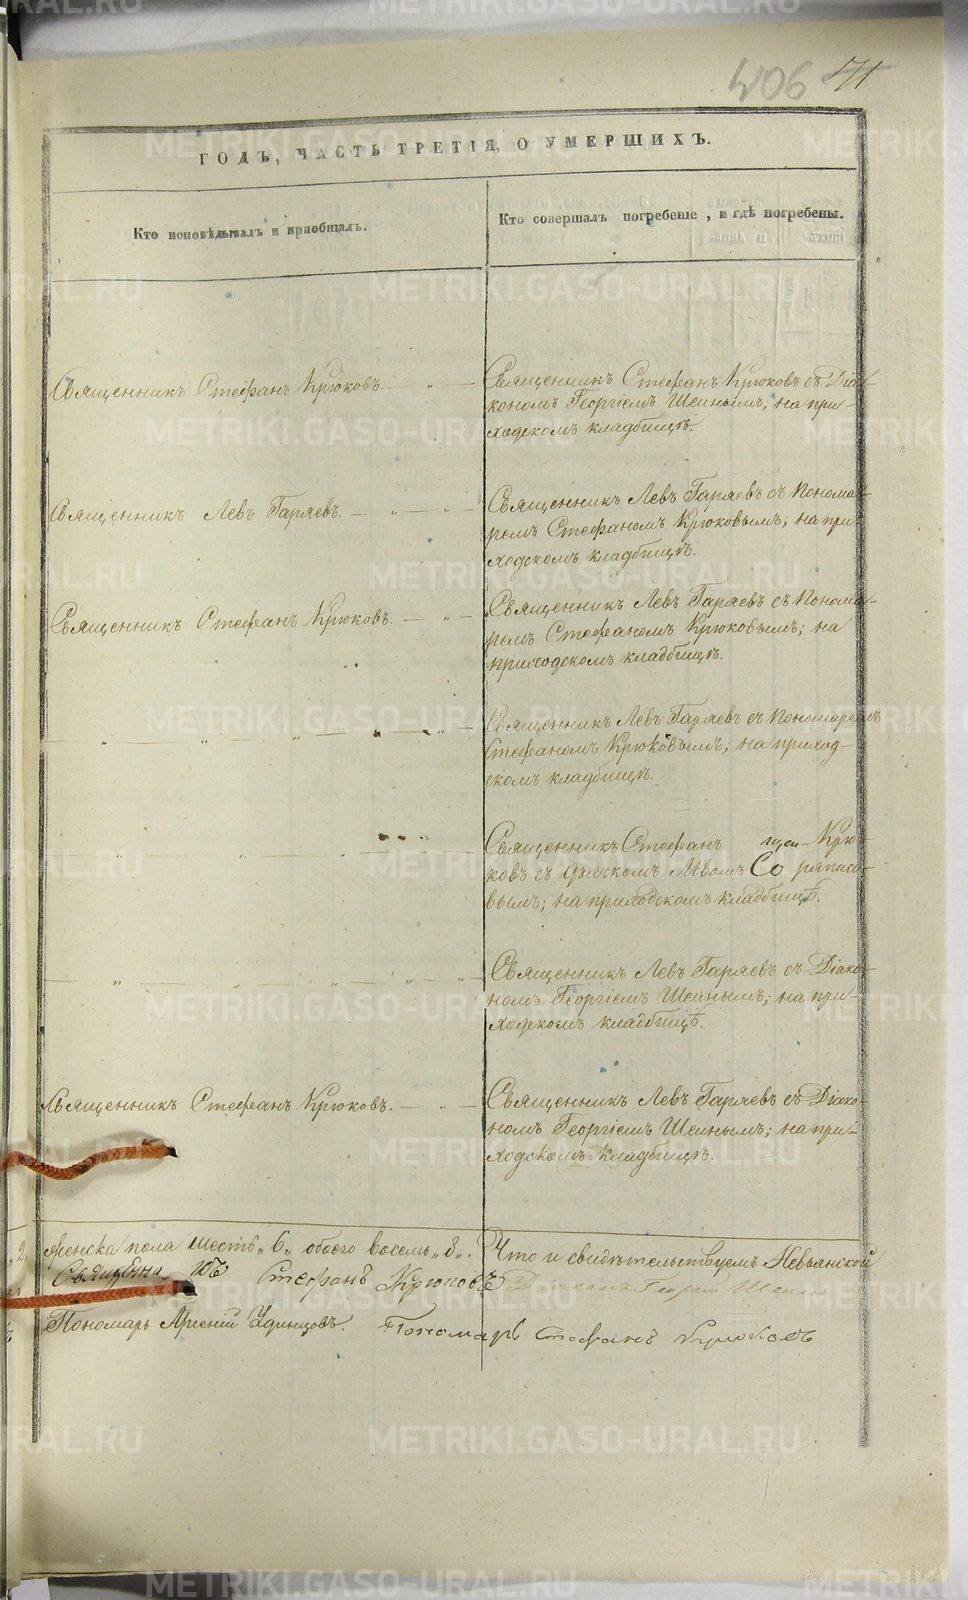 406 71
ГОДЪ, ЧАСТЬ ТРЕТІЯ, О УМЕРШИХЪ.
Кто исповѣдывалъ и пріобщалъ.
Кто совершалъ погребеніе, и гдѣ погребены.
Священникъ Стефанъ Крюковъ. — „ —
Священникъ Стефанъ Крюковъ съ Діа-
кономъ Георгіемъ Шеинымъ; на при-
ходскомъ кладбищѣ.
Священникъ Левъ Гаряевъ. — „ — „ —
Священникъ Левъ Гаряевъ съ Понома-
ремъ Стефаномъ Крюковымъ; на при-
ходскомъ кладбищѣ.
Священникъ Стефанъ Крюковъ. — „ —
Священникъ Левъ Гаряевъ съ Понома-
ремъ Стефаномъ Крюковымъ; на
приходскомъ кладбищѣ.
— „ — „ — „ — „ — „ —
Священникъ Левъ Гаряевъ съ Пономаремъ
Стефаномъ Крюковымъ; на приход-
скомъ кладбищѣ.
— „ — „ — „ — „ —
Священникъ Стефанъ Крю-
ковъ съ дьячкомъ Львомъ
вымъ; на приходскомъ кладбищѣ.
— „ — „ — „ — „ — „ —
Священникъ Левъ Гаряевъ съ Діако-
номъ Георгіемъ Шеинымъ; на при-
ходскомъ кладбищѣ.
Священникъ Стефанъ Крюковъ. — „ —
Священникъ Левъ Гаряевъ съ Діако-
номъ Георгіемъ Шеинымъ; на при-
ходскомъ кладбищѣ.
женска пола шесть „6„ обоего восемь „8„. Что и свидѣтельствуемъ Невьянской
Священникъ Стефанъ Крюковъ Діаконъ Георгій Шеинъ
Пономарь Арсеній Удинцовъ. Пономарь Стефанъ Крюковъ
METRIKI.GASO-URAL.RU